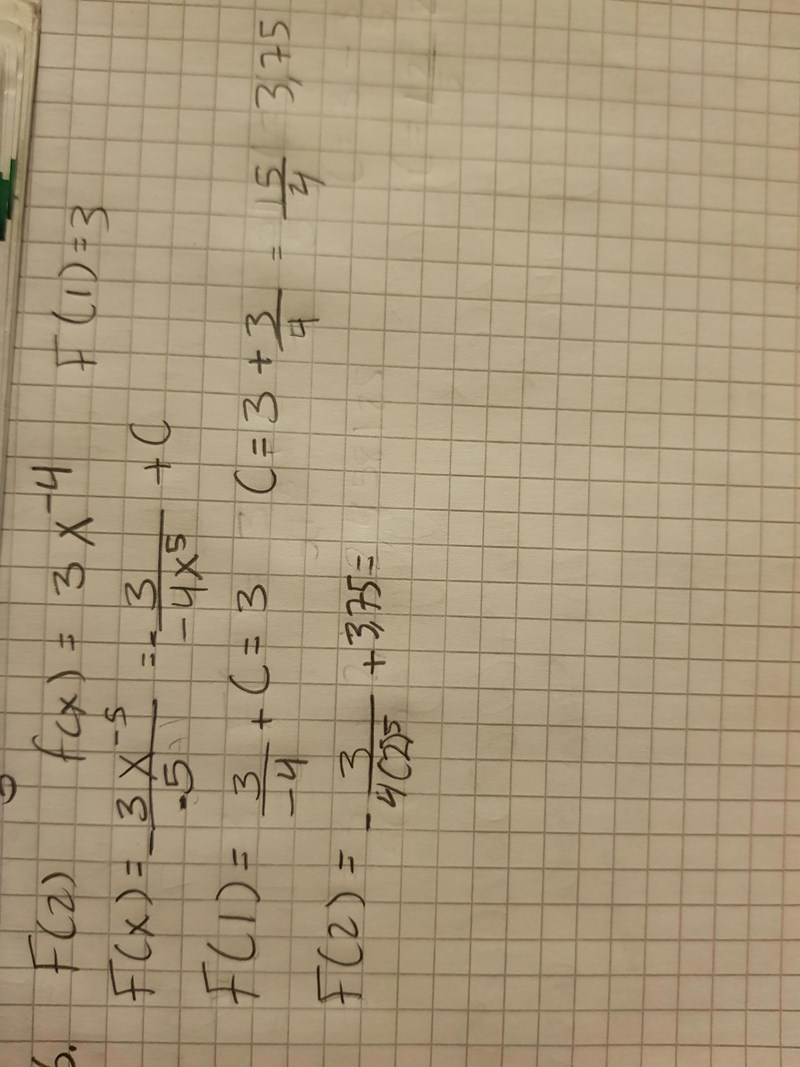 6. F(2) f(x) = 3x^-4 F(1)=3
F(x) = -3x^-5/-5 = -3/-4x^5 + C
F(1) = 3/-4 + C = 3 C = 3 + 3/4 = 15/4 3,75
F(2) = -3/4(2)^5 + 3,75 =